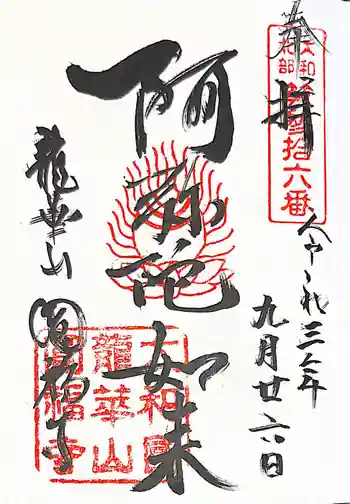 奉拝
大和北部
第参拾六番
令和三年
九月廿六日
阿弥陀如来
龍華山
大和國
龍華山
福寺